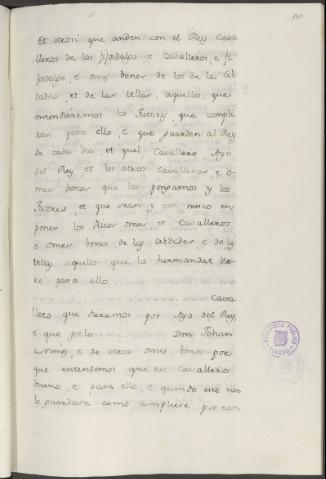 Et otrosi que anden con el Rey Cava
lleros de los fijosdalgo e Cavalleros, e fi
josdalgo, e omes bonos de los de las Cib
dades, et de las Villas aquellos, que
entendieremos los Tutores, que compli
ran para ello, e que guarden al Rey
de cada dia et quel Cavallero, Ayo
del Rey, et los otros Cavalleros e o-
mes bonos que los pongamos y los
Tutores, et que sean y con nusco en
poner los Ricos omes et Cavalleros
e omes bonos de las Cibdades, e de las
Villas aquellos que la hermandat die-
re para ello
Cava
llero que ponemos por Ayo del Rey,
e que pelo Don Johan
Nunes, e de otros omes bonos por
que entendemos que es Cavallero
bueno e para ello, e quando este non
lo guardare como cumpliere por non